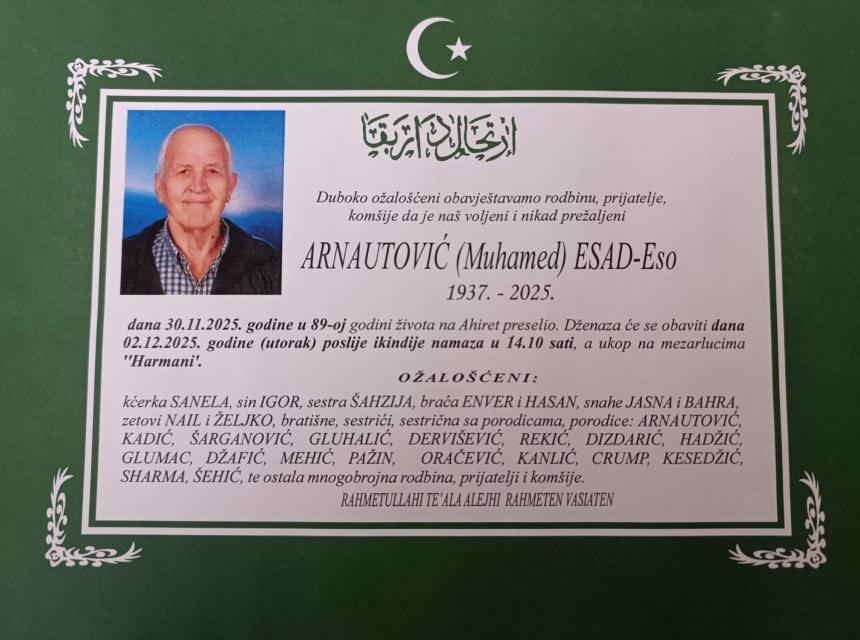 ارتحال دار بقا
Duboko ožalošćeni obavještavamo rodbinu, prijatelje,
komšije da je naš voljeni i nikad prežaljeni
ARNAUTOVIĆ (Muhamed) ESAD-Eso
1937. - 2025.
dana 30.11.2025. godine u 89-oj godini života na Ahiret preselio. Dženaza će se obaviti dana
02.12.2025. godine (utorak) poslije ikindije namaza u 14.10 sati, a ukop na mezarlucima
"Harmani'.
OŽALOŠĆENI:
kćerka SANELA, sin IGOR, sestra ŠAHZIJA, braća ENVER i HASAN, snahe JASNA i BAHRA,
zetovi NAIL i ŽELJKO, bratišne, sestrići, sestrična sa porodicama, porodice: ARNAUTOVIĆ,
KADIĆ, ŠARGANOVIĆ, GLUHALIĆ, DERVIŠEVIĆ, REKIĆ, DIZDARIĆ, HADŽIĆ,
GLUMAC, DŽAFIĆ, MEHIĆ, PAŽIN, ORAČEVIĆ, KANLIĆ, CRUMP, KESEDŽIĆ,
SHARMA, ŠEHIĆ, te ostala mnogobrojna rodbina, prijatelji i komšije.
RAHMETULLAHI TE'ALA ALEJHI RAHMETEN VASIATEN